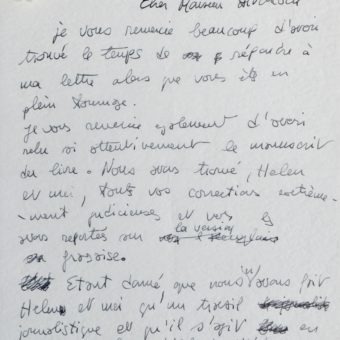 Cher Monsieur
je vous remercie beaucoup d'avoir
trouvé le temps de répondre à
ma lettre alors que vous êtes en
plein tournage.
Je vous remercie également d'avoir
relu si attentivement le manuscrit
du livre. Nous avons trouvé, Helen
et moi, toutes vos corrections extrême-
-ment judicieuses et les
avons reportés sur la version
française.
Etant donné que nous n'avons fait
Helen et moi qu'un travail
journalistique et qu'il s'agit en